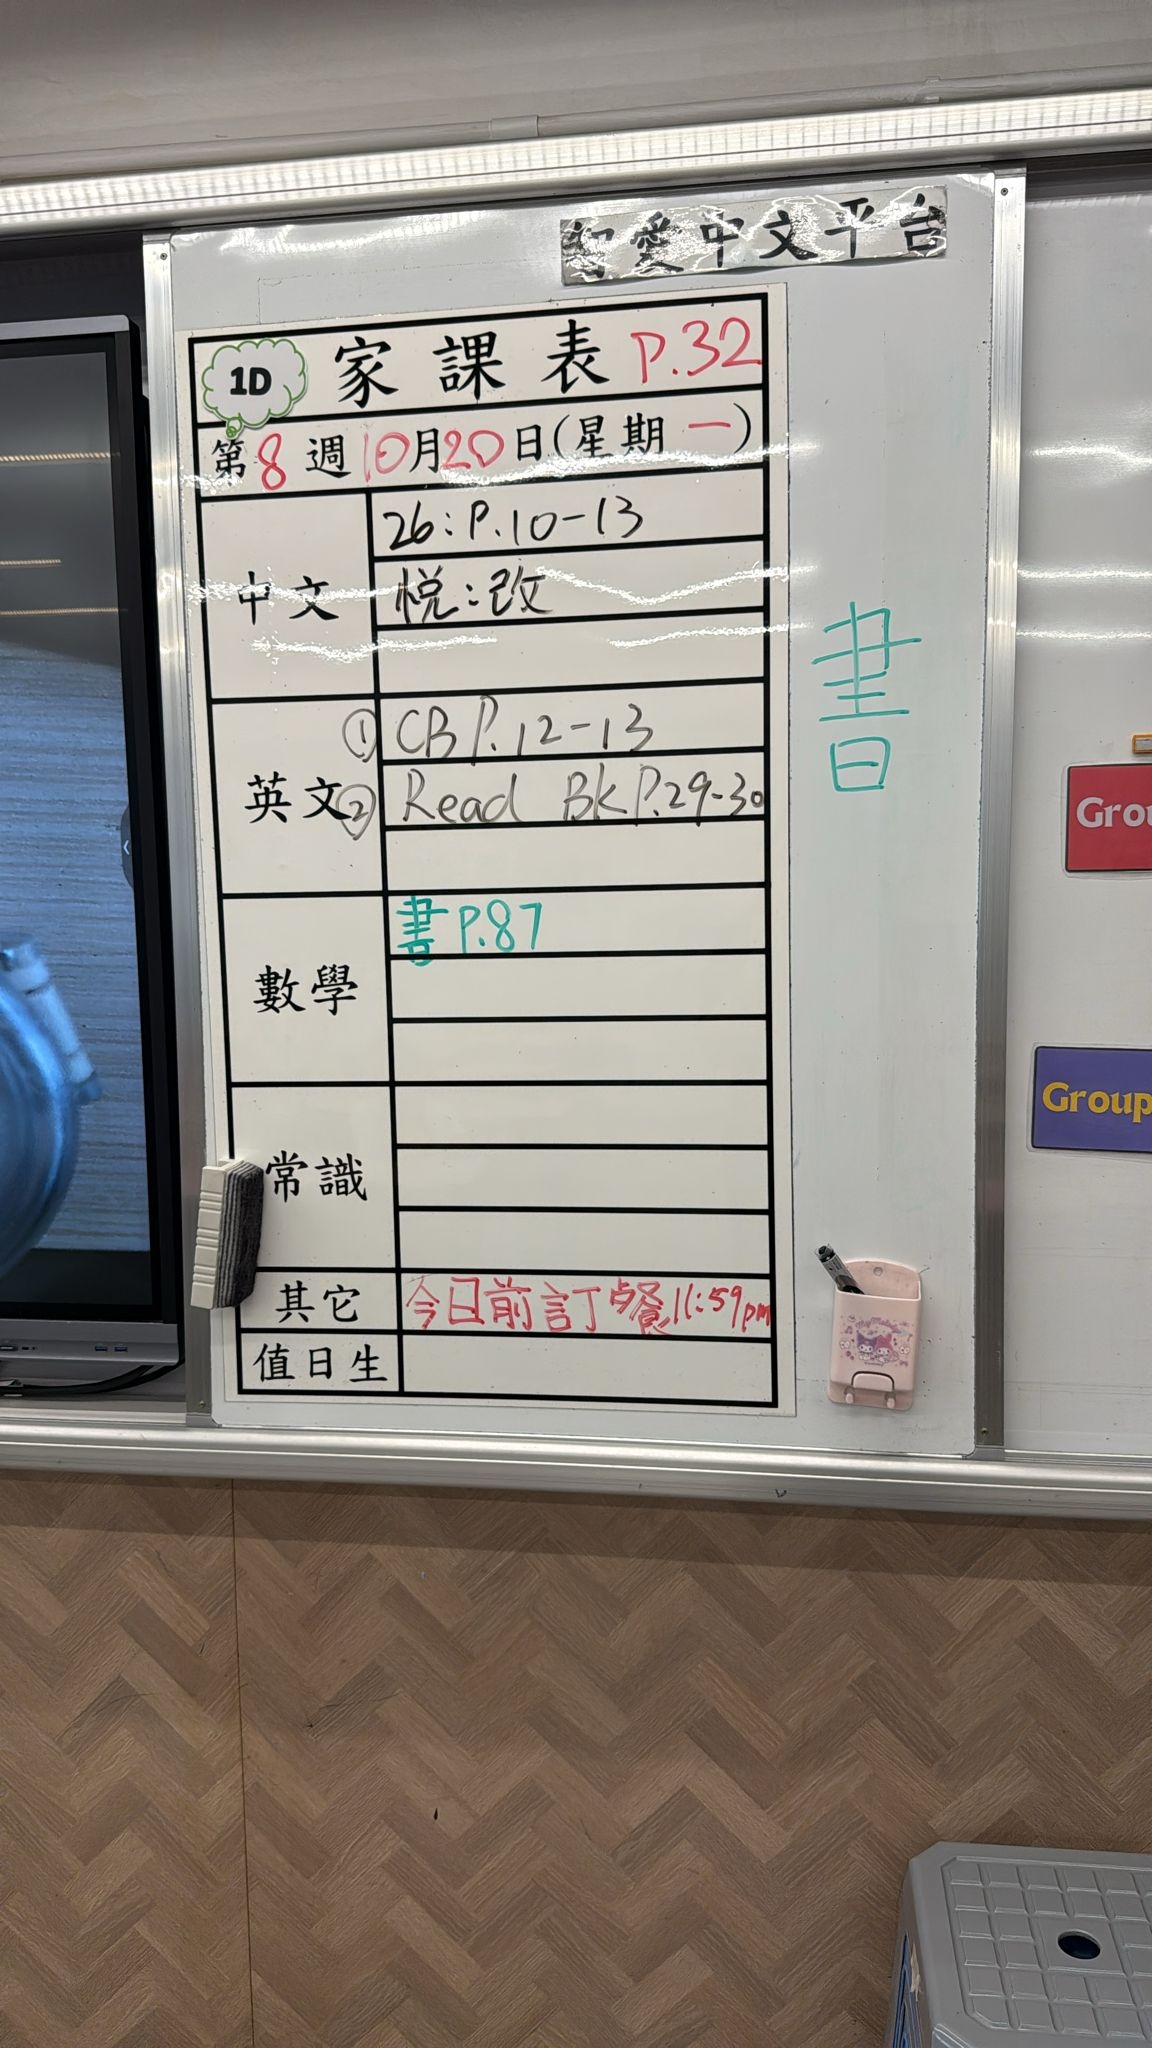 愛中文平台
1D 家課表 P.32
第8週10月20日(星期一)
中文
26:P.10-13
悦:改
英文
① CB P.12-13
② Read Bk P.29-30
數學
書 P.87
常識
其它
今日前訂餐11:59pm
值日生
書
Grou
Group